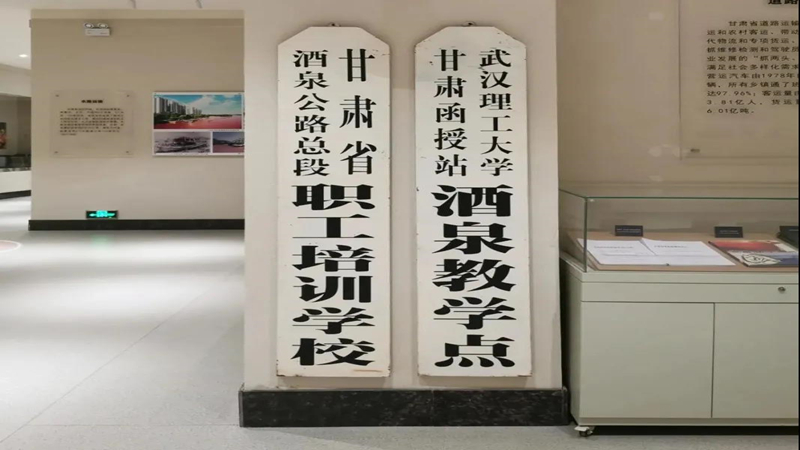 甘肃省
酒泉公路总段
职工培训学校
武汉理工大学
甘肃函授站
酒泉教学点
道路
甘肃省道路运输
运和农村客运、带动
代物流和专项货运、
抓维修检测和驾驶员
业发展的“抓两头、
满足社会多样化需求
营运汽车由1978年
辆，所有乡镇通了
达97.96%；客运量
3.81亿人，货运
6.01亿吨。